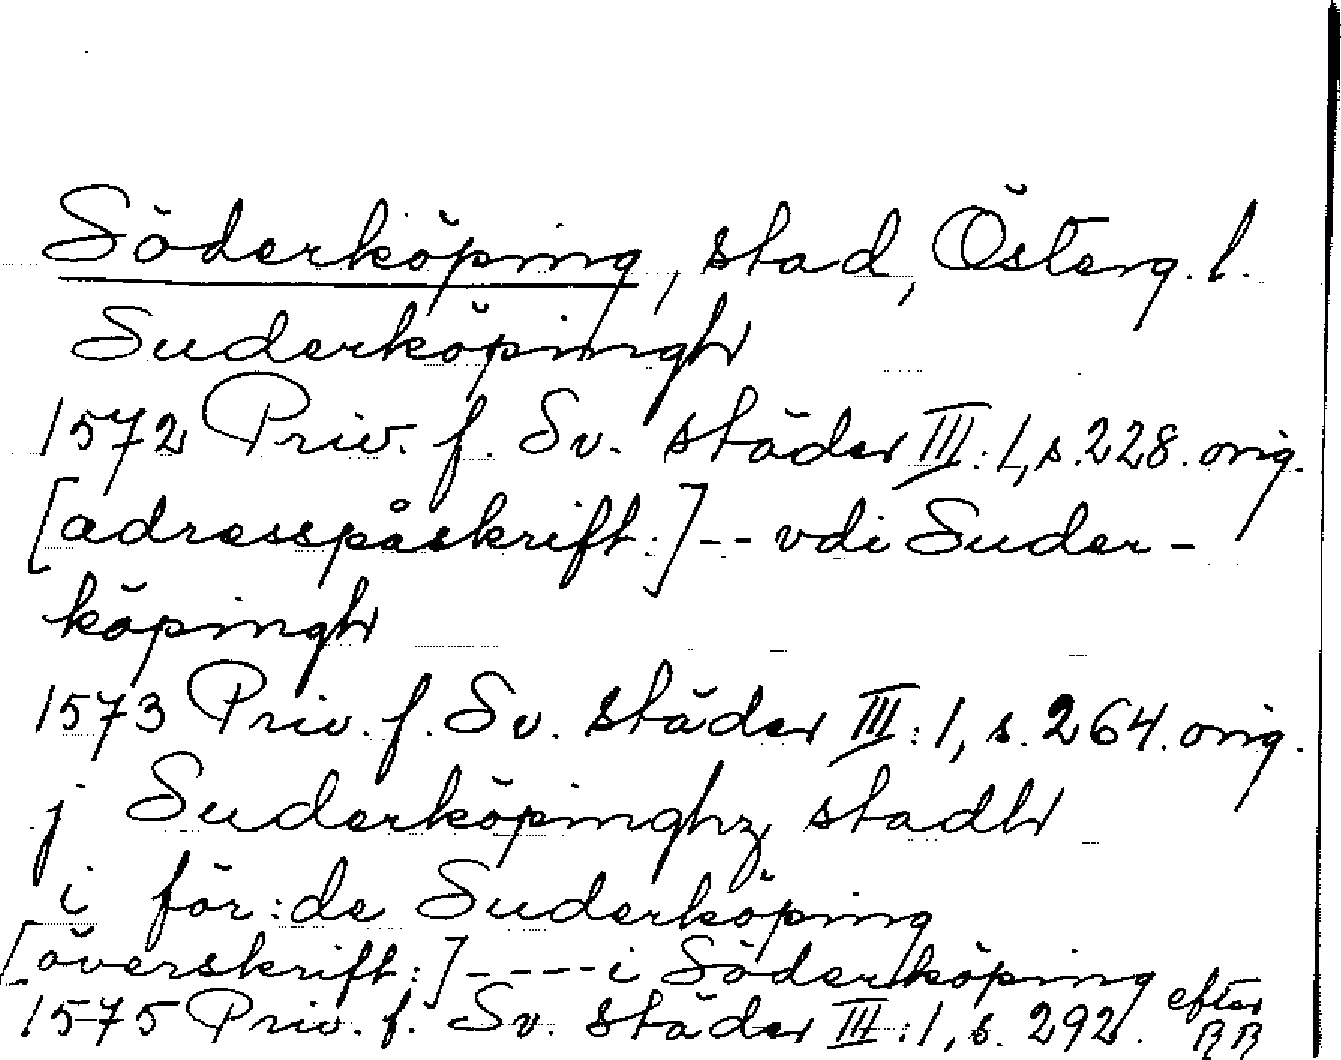 Söderköping, stad, Österg. l.
Suderköpingh
1572 Priv. f. Sv. städer III:1, s. 228. orig.
[adresspåskrift:] -- vdi Suder-
köpingh
1573 Priv. f. Sv. städer III:1, s. 264. orig.
j Suderköpinghz stadh
i för:de Suderköping
[överskrift:] ---- i Söderköping
1575 Priv. f. Sv. städer III:1, s. 292. efter
RR